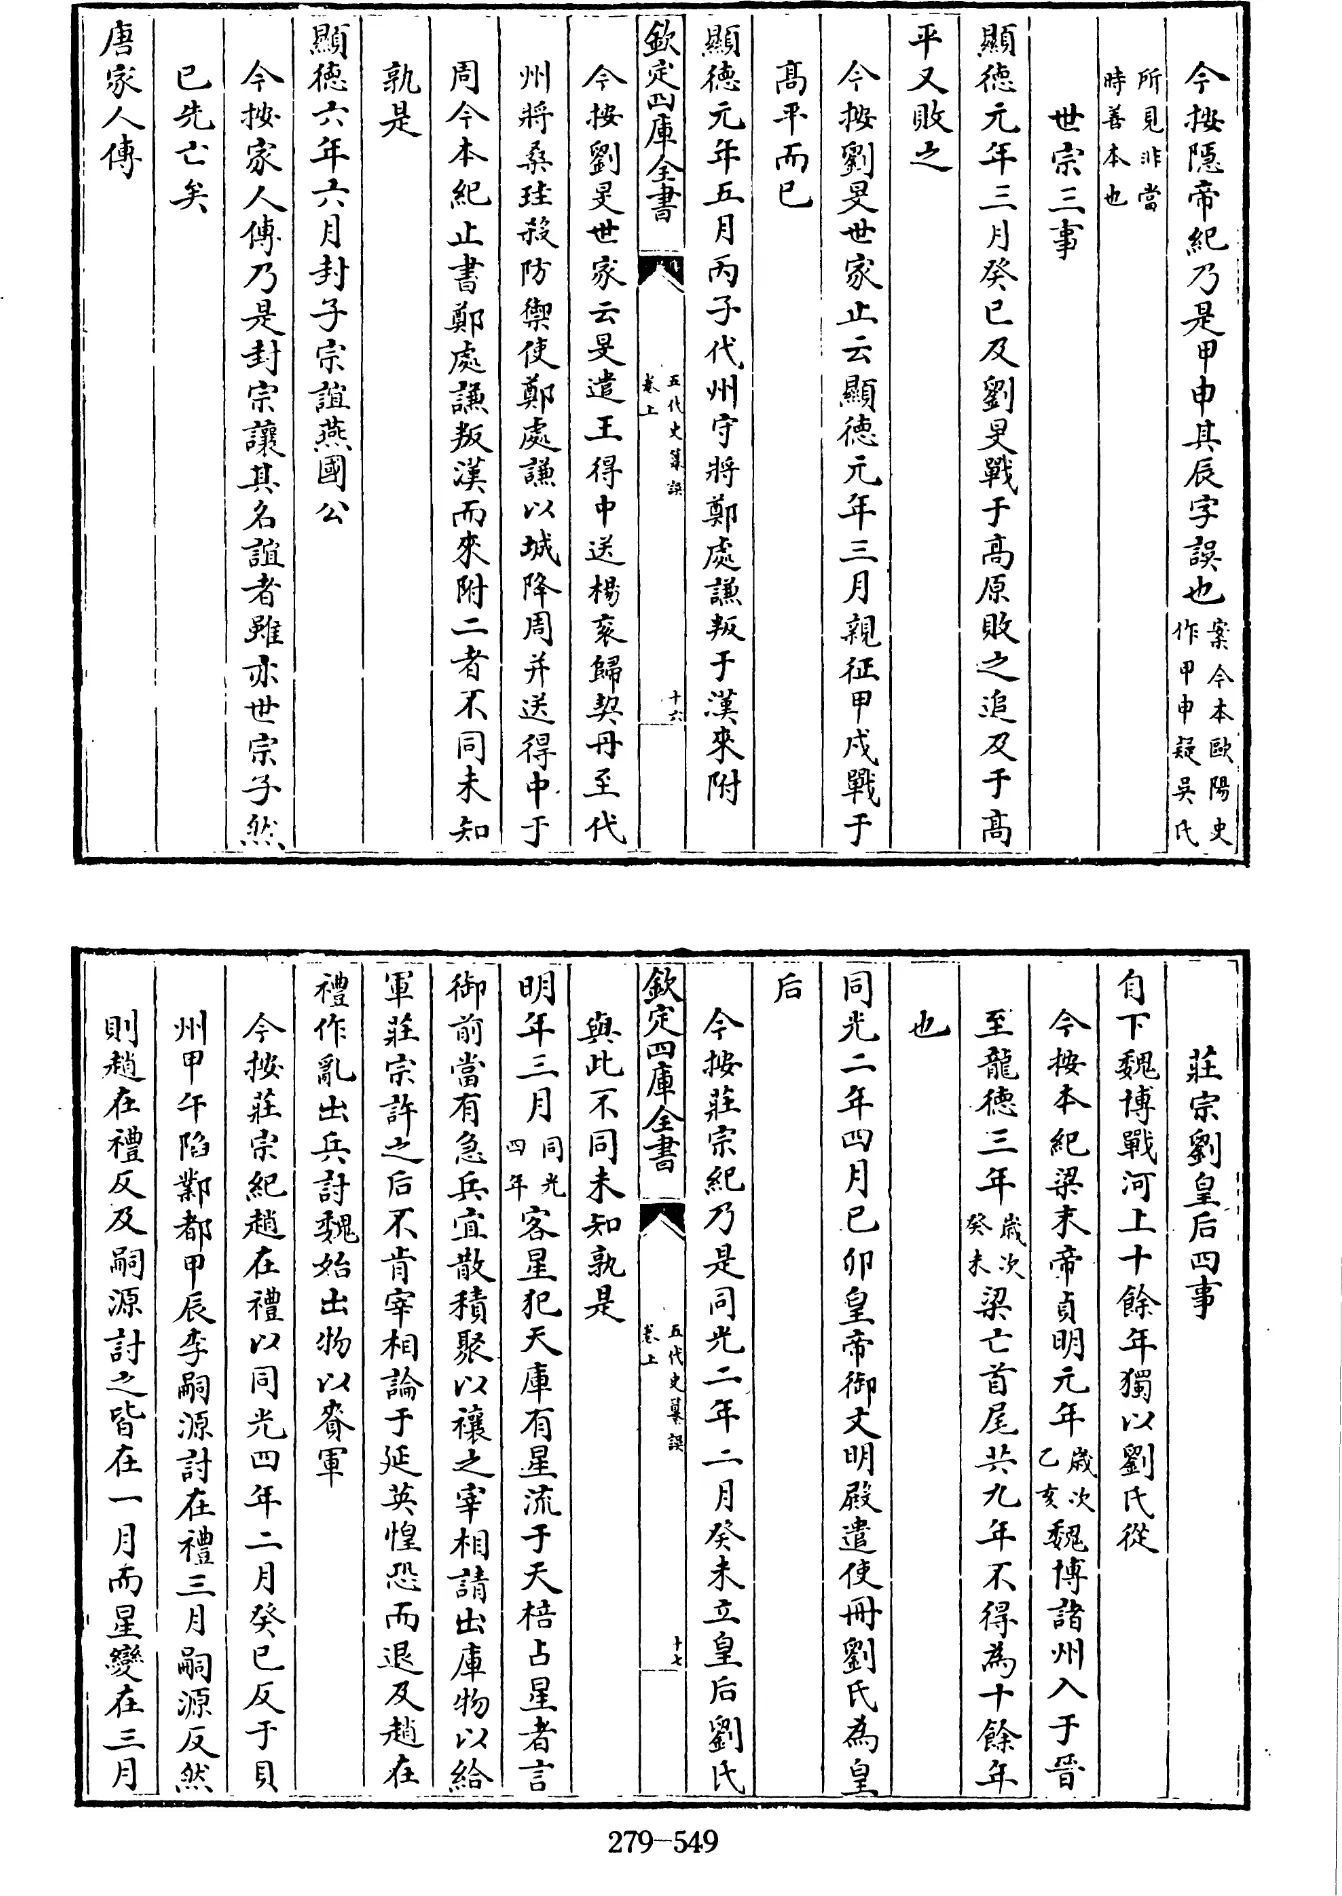 今按隱帝紀乃是甲申其辰字誤也案今本歐陽史作甲申疑吳氏
所見非當時善本也
世宗三事
顯德元年三月癸巳及劉旻戰于高原敗之追及于高
平又敗之
今按劉旻世家止云顯德元年三月親征甲戌戰于
高平而已
顯德元年五月丙子代州守將鄭處謙叛于漢來附
欽定四庫全書
五代史纂誤
卷上
十六
今按劉旻世家云旻遣王得中送楊袞歸契丹至代
州將桑珪殺防禦使鄭處謙以城降周并送得中于
周今本紀止書鄭處謙叛漢而來附二者不同未知
孰是
顯德六年六月封子宗誼燕國公
今按家人傳乃是封宗讓其名誼者雖亦世宗子然
已先亡矣
唐家人傳
莊宗劉皇后四事
自下魏博戰河上十餘年獨以劉氏從
今按本紀梁末帝貞明元年歲次乙亥魏博諸州入于晉
至龍德三年歲次癸未梁亡首尾共九年不得為十餘年
也
同光二年四月己卯皇帝御文明殿遣使冊劉氏為皇
后
今按莊宗紀乃是同光二年二月癸未立皇后劉氏
欽定四庫全書
五代史纂誤
卷上
十七
與此不同未知孰是
明年三月同光四年客星犯天庫有星流于天棓占星者言
御前當有急兵宜散積聚以禳之宰相請出庫物以給
軍莊宗許之后不肯宰相論于延英惶恐而退及趙在
禮作亂出兵討魏始出物以賚軍
今按莊宗紀趙在禮以同光四年二月癸巳反于貝
州甲午陷鄴都甲辰李嗣源討在禮三月嗣源反然
則趙在禮反及嗣源討之皆在一月而星變在三月
279-549